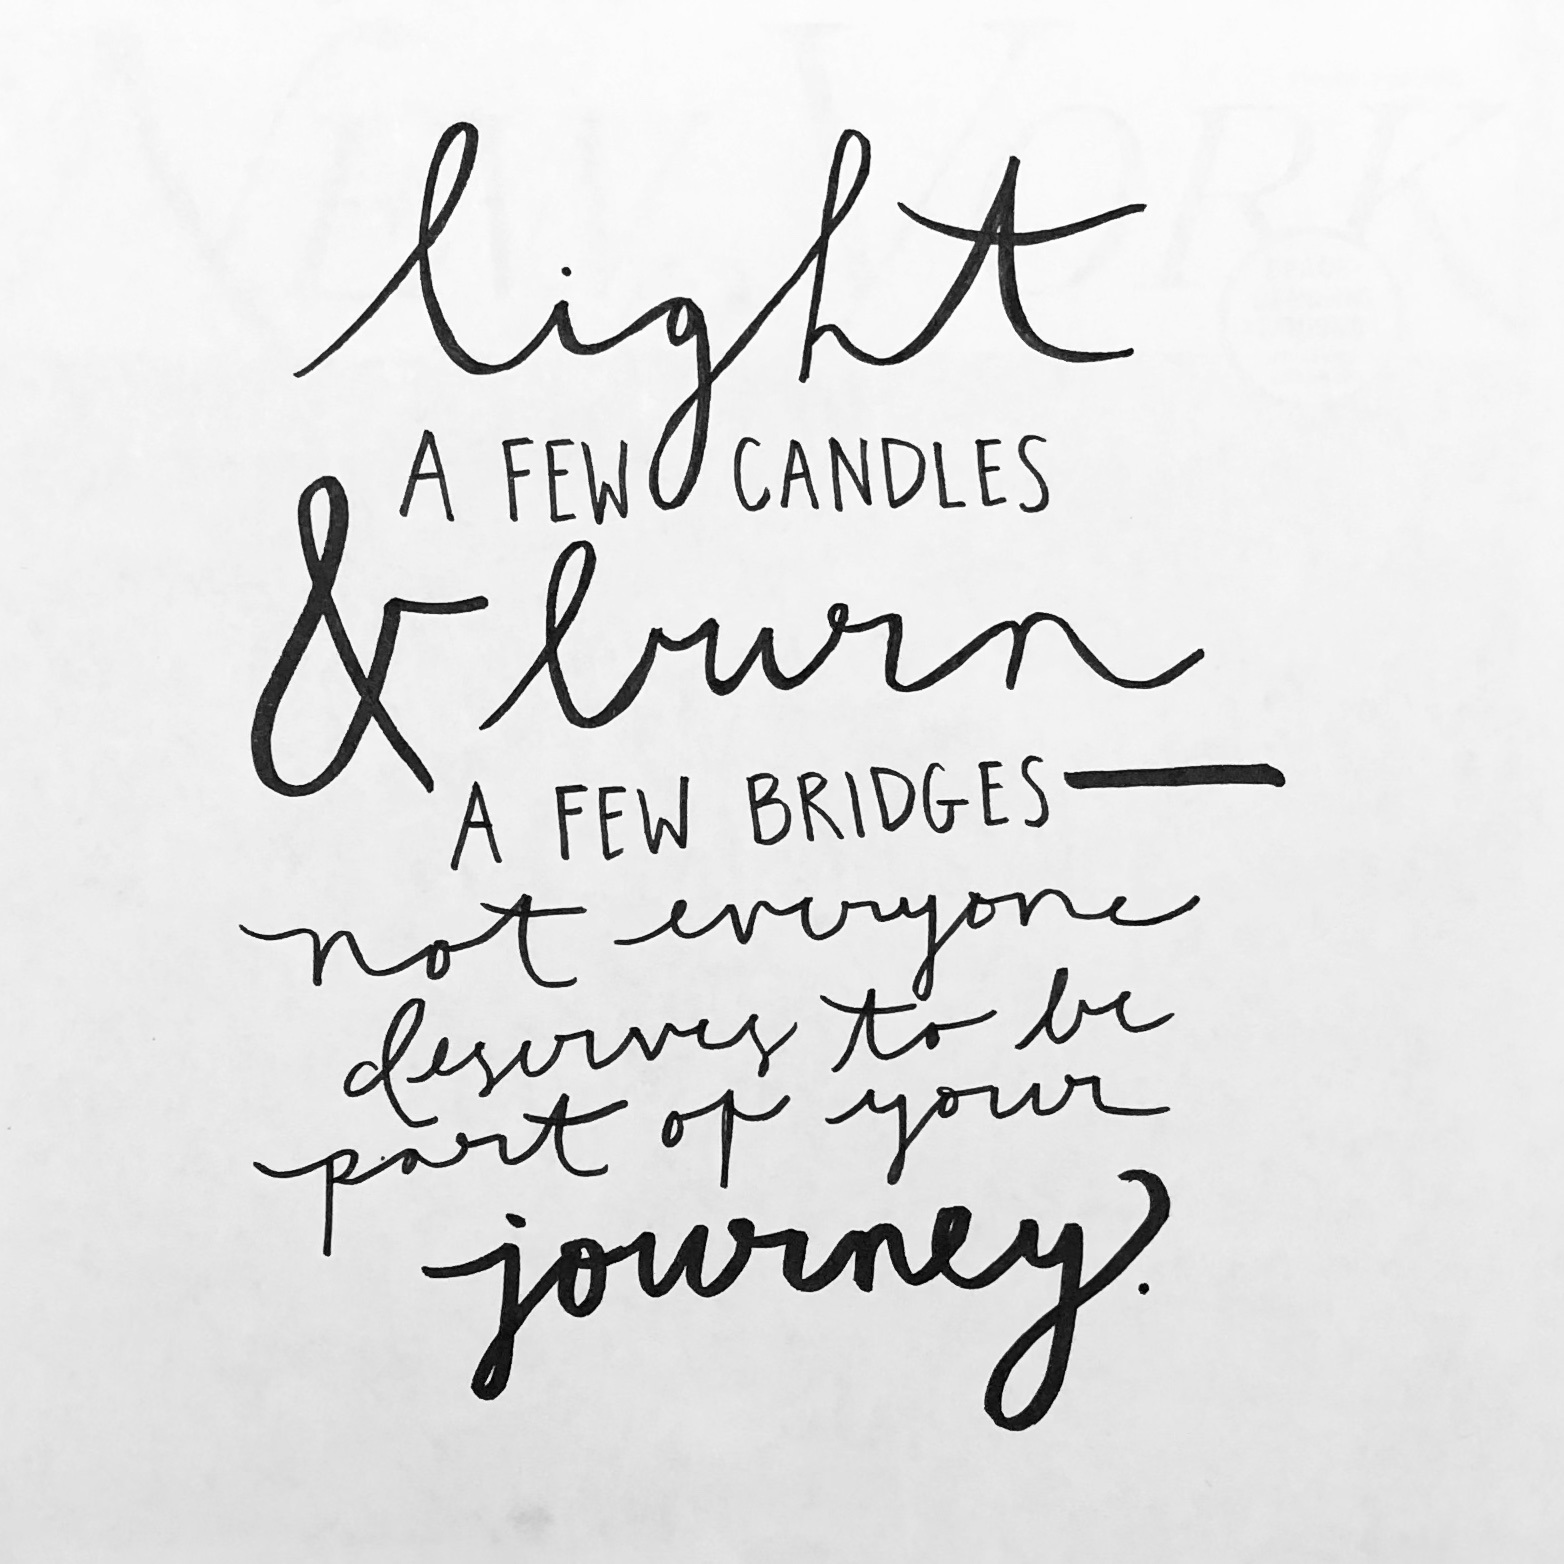 light
A FEW CANDLES
& burn
A FEW BRIDGES—
not everyone
deserves to be
part of your
journey.
NEW YORK